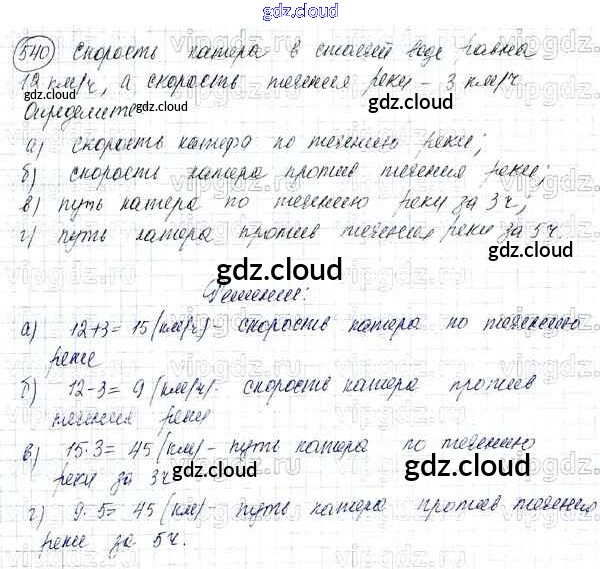 gdz.cloud
540 Скорость катера в стоячей воде равна
12 км/ч, а скорость течения реки - 3 км/ч
gdz.cloud
Определите
gdz.cloud
а) скорость катера по течению реки;
б) скорость катера против течения реки;
в) путь катера по течению реки за 3ч;
г) путь катера против течения реки за 5ч.
gdz.cloud
Решение:
gdz.cloud
а) 12+3= 15 (км/ч) - скорость катера по течению
реки
gdz.cloud
б) 12-3= 9 (км/ч)- скорость катера против
течения реки
gdz.cloud
в) 15·3= 45 (км) - путь катера по течению
реки за 3ч
gdz.cloud
gdz.cloud
г) 9·5= 45 (км) - путь катера против течению
gdz.cloud
реки за 5ч.